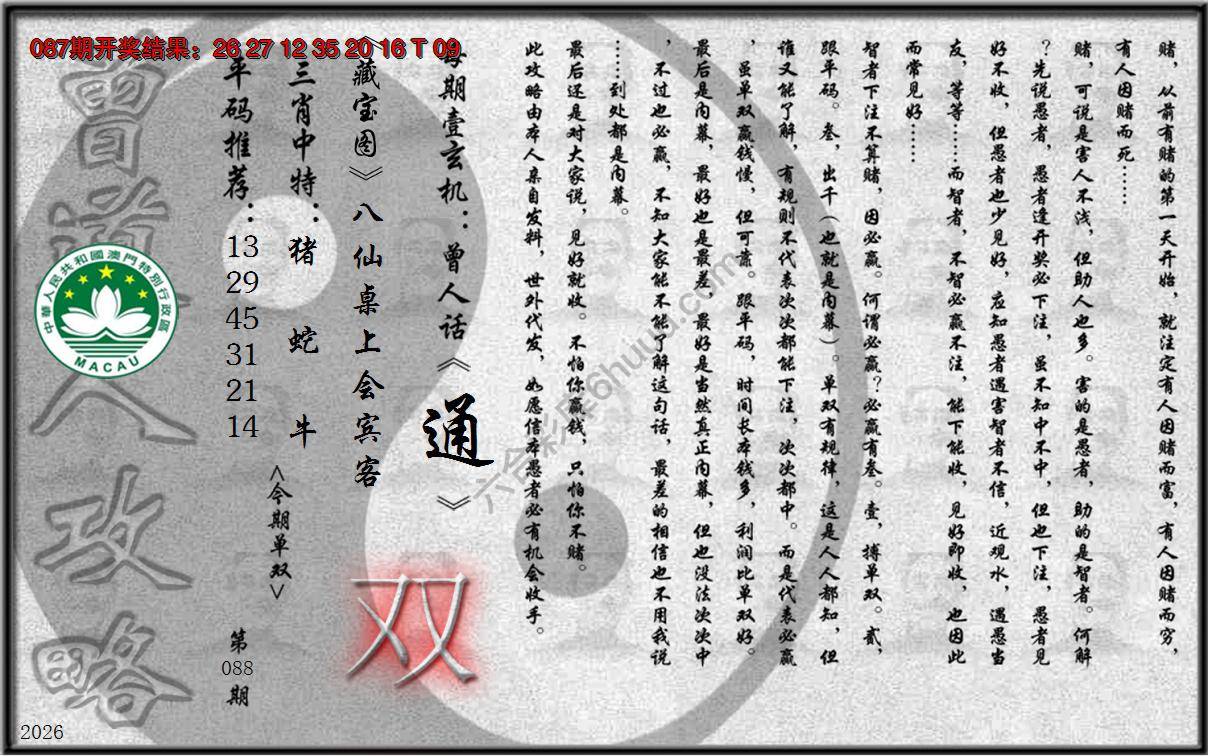 087期开奖结果：26 27 12 35 20 16 T 09
赌，从前有赌的第一天开始，就注定有人因赌而富，有人因赌而穷，
有人因赌而死……
赌，可说是害人不浅，但助人也多。害的是愚者，助的是智者。何解
？先说愚者，愚者逢开奖必下注，虽不知中不中，但也下注，愚者见
好不收，但愚者也少见好，应知愚者遇害智者不信，近观水，遇愚当
友，等等……而智者，不智必赢不注，能下能收，见好即收，也因此
而常见好……
智者下注不算赌，因必赢。何谓必赢？必赢有叁。壹，搏单双。贰，
跟平码。叁，出千（也就是内幕）。单双有规律，这是人人都知，但
谁又能了解，有规则不代表次次都能下注，次次都中。而是代表必赢
，虽单双赢钱慢，但可靠。跟平码，时间长本钱多，利润比单双好。
最后是内幕，最好也是最差，最好是当然真正内幕，但也没法次次中
，不过也必赢，不知大家能不能了解这句话，最差的相信也不用我说
……到处都是内幕。
最后还是对大家说，见好就收。不怕你赢钱，只怕你不赌。
此攻略由本人亲自发料，世外代发，如愿信本愚者必有机会收手。
每期壹玄机：曾人话《通》
《藏宝图》八仙桌上会宾客
三肖中特：猪 蛇 牛
<今期单双>
双
平码推荐：
13
29
45
31
21
14
第
088
期
曾道人攻略
中華人民共和國澳門特別行政區
MACAU
2026